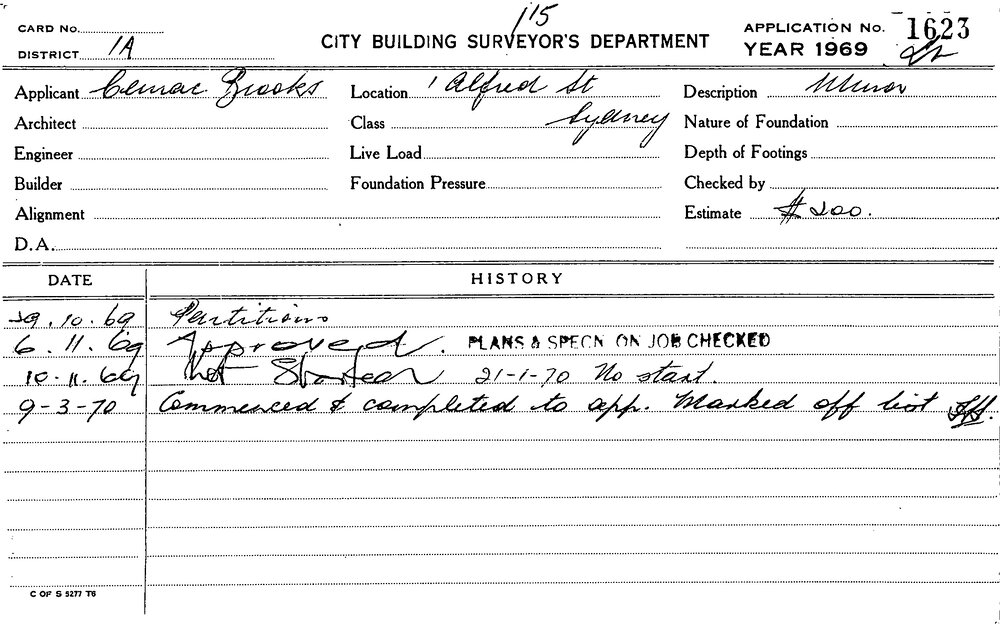 1'15
CARD No. APPLICATION No. 1623
DISTRICT 1A CITY BUILDING SURVEYOR'S DEPARTMENT YEAR 1969
Applicant Cemac Brooks Location 1 Alfred St Description Minor
Architect Class Sydney Nature of Foundation
Engineer Live Load Depth of Footings
Builder Foundation Pressure Checked by
Alignment Estimate $200.
D.A.
DATE HISTORY
29.10.69 Partitions
6.11.69 Approved. PLANS & SPECN ON JOB CHECKED
10.11.69 Not Started 21-1-70 No start.
9-3-70 Commenced & completed to app. Marked off list
C OF S 5277 T6